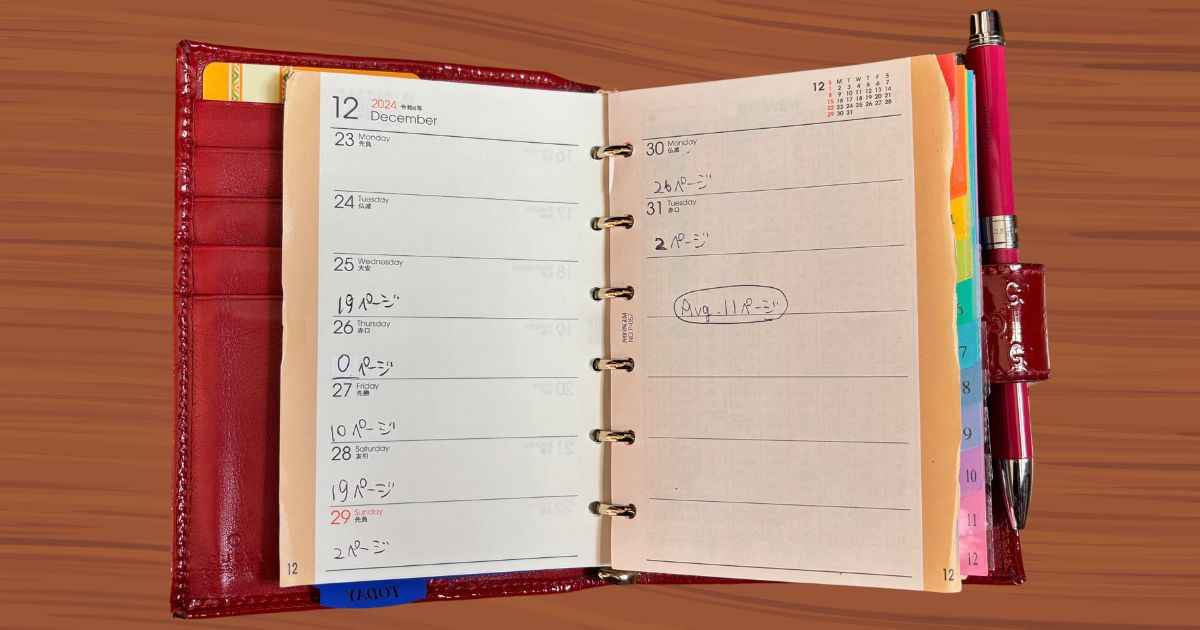 12 2024 令和6年
December
23 Monday
先負
24 Tuesday
仏滅
25 Wednesday
大安
19ページ
26 Thursday
赤口
0ページ
27 Friday
先勝
10ページ
28 Saturday
友引
19ページ
29 Sunday
先負
2ページ
12
TODAY
12 S M T W T F S
1 2 3 4 5 6 7
8 9 10 11 12 13 14
15 16 17 18 19 20 21
22 23 24 25 26 27 28
29 30 31
30 Monday
仏滅
26ページ
31 Tuesday
赤口
2ページ
Avg. 11ページ
NO. P-057
12
7
8
9
10
11
12